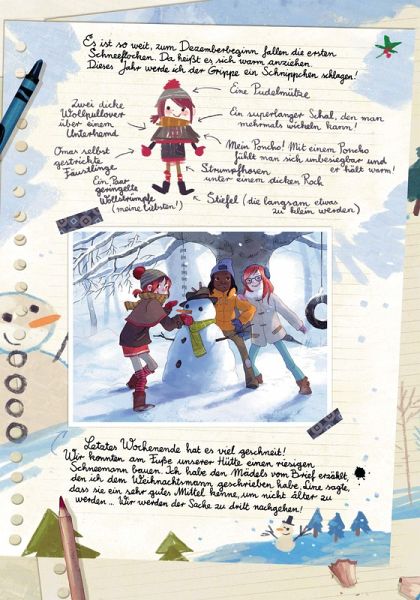 Es ist so weit, zum Dezemberbeginn fallen die ersten
Schneeflocken. Da heißt es sich warm anziehen.
Dieses Jahr werde ich der Grippe ein Schnippchen schlagen!
Eine Pudelmütze
Zwei dicke
Wollpullover
über einem
Unterhemd
Ein superlanger Schal, den man
mehrmals wickeln kann!
Mein Poncho! Mit einem Poncho
fühlt man sich unbesiegbar und
er hält warm!
Omas selbst
gestrickte
Fäustlinge
Strumpfhosen
unter einem dicken Rock
Ein Paar
geringelte
Wollstrümpfe
(meine liebsten!)
Stiefel (die langsam etwas
zu klein werden)
Letztes Wochenende hat es viel geschneit!
Wir konnten am Fuße unserer Hütte einen riesigen
Schneemann bauen. Ich habe den Mädels vom Brief erzählt,
den ich dem Weihnachtsmann geschrieben habe. Line sagte,
dass sie ein sehr gutes Mittel kenne, um nicht älter zu
werden ... Wir werden der Sache zu dritt nachgehen!